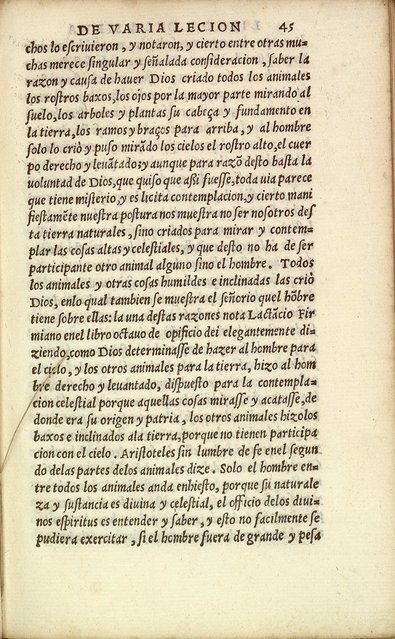 DE VARIA LECION 45
chos lo escriuieron, y notaron, y cierto entre otras mu-
chas merece singular y señalada consideracion, saber la
razon y causa de hauer Dios criado todos los animales
los rostros baxos, los ojos por la mayor parte mirando al
suelo, los arboles y plantas su cabeça y fundamento en
la tierra, los ramos y braços para arriba, y al hombre
solo lo criò y puso mirãdo los cielos el rostro alto, el cuer
po derecho y leuãtado: y aunque para razõ desto basta la
voluntad de Dios, que quiso que assi fuesse, toda uia parece
que tiene misterio, y es licita contemplacion, y cierto mani
fiestamẽte nuestra postura nos muestra no ser nosotros des
ta tierra naturales, sino criados para mirar y contem-
plar las cosas altas y celestiales, y que desto no ha de ser
participante otro animal alguno sino el hombre. Todos
los animales y otras cosas humildes e inclinadas las criò
Dios, enlo qual tambien se muestra el señorio quel hõbre
tiene sobre ellas: la una destas razones nota Lactãcio Fir
miano enel libro octauo de opificio dei elegantemente di-
ziendo, como Dios determinasse de hazer al hombre para
el cielo, y los otros animales para la tierra, hizo al hom
bre derecho y leuantado, dispuesto para la contempla-
cion celestial porque aquellas cosas mirasse y acatasse, de
donde era su origen y patria, los otros animales hizolos
baxos e inclinados ala tierra, porque no tienen participa
cion con el cielo. Aristoteles sin lumbre de fe enel segun
do delas partes delos animales dize. Solo el hombre en-
tre todos los animales anda enhiesto, porque su naturale
za y sustancia es diuina y celestial, el officio delos diui-
nos espiritus es entender y saber, y esto no facilmente se
pudiera exercitar, si el hombre fuera de grande y pesa